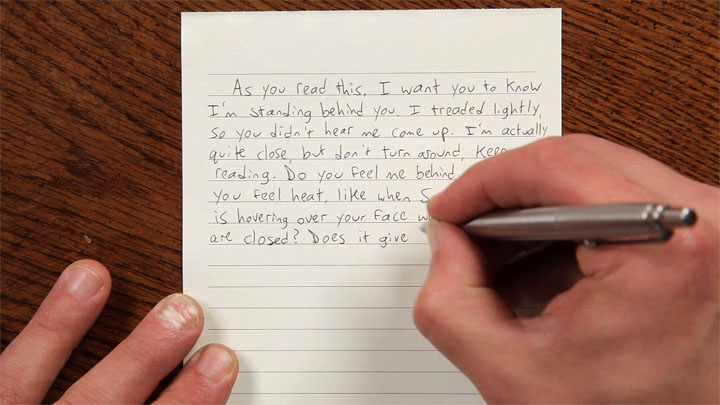 As you read this, I want you to know
I'm standing behind you. I treaded lightly,
so you didn't hear me come up. I'm actually
quite close, but don't turn around, Keep
reading. Do you feel me behind
you feel heat, like when
is hovering over your face
are closed? Does it give